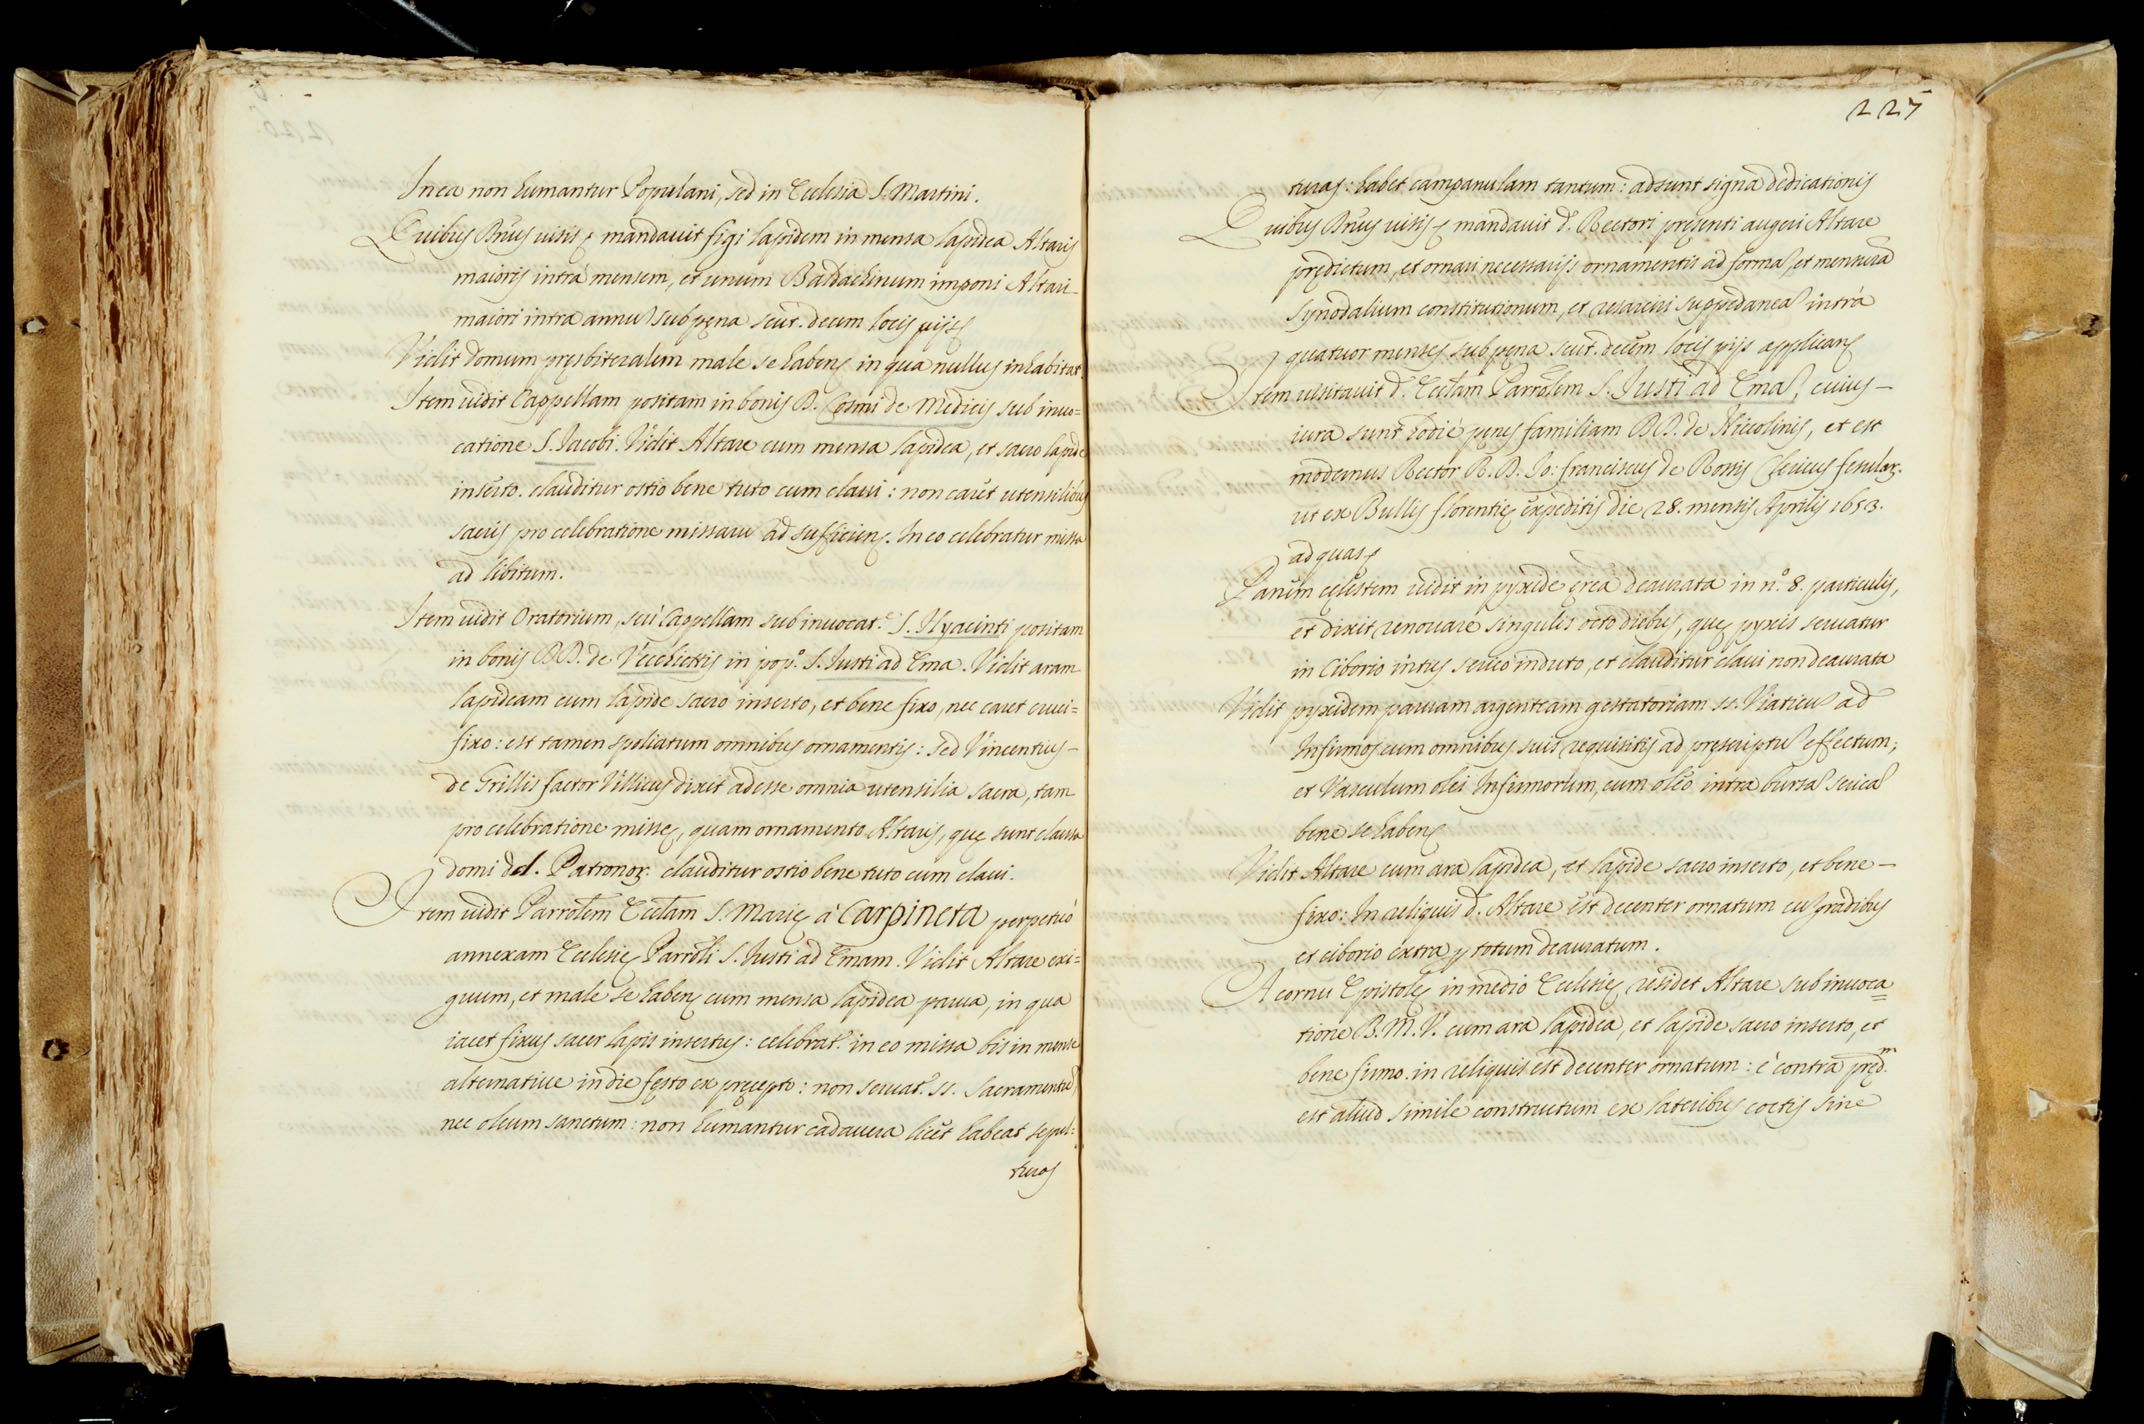 In ea non humantur Populani, sed in Ecclesia S. Martini.
Quibus omnibus visis &c. mandavit figi lapidem in mensa lapidea Altaris
maioris intrà mensem, et unum Baldachinum imponi Altari
maiori intra annũ sub pęna scut. decem locis pijs &c
Vidit domum pręsbiteralem male se habenẽ in qua nullus inhabitat.
Item vidit Cappellam positam in bonis D. Cosmi de Medicis sub invo=
catione S. Jacobi. Vidit Altare cum mensa lapidea, et sacro lapide
inserto. clauditur ostio bene tuto cum clavi: non caret utensilibus
sacris pro celebratione missarũ ad sufficienẽ. In eo celebratur missa
ad libitum.
Item vidit Oratorium, seù Cappellam sub invocat.e S. Hyacinti positam
in bonis DD. de Vecchiettis in pop.o S. Iusti ad Ema. Vidit aram
lapideam cum lapide sacro inserto, et bene fixo, nec caret cruci=
fixo: est tamen spoliatum omnibus ornamentis: sed Vincentius
de Grillis factor Villicus dixit adesse omnia utensilia sacra, tam
pro celebratione missę, quam ornamento Altaris, quę sunt clausa
domi dd. Patronoꝝ. clauditur ostio bene tuto cum clavi.
Item vidit Parrolem Ecclam S. Marię à Carpineta perpetuò
annexam Ecclesię Parroli S. Iusti ad Emam. Vidit Altare exi=
guum, et male se habenẽ cum mensa lapidea parva, in qua
iacet fixus sacer lapis insertus: celebrat.r in eo missa bis in mense
alternative in die festo ex pręcepto: non servat.r ss. Sacramentũ
nec oleum sanctum: non humantur cadavera licèt habeat sepul:
turas
227
turas: habet campanulam tantum: adsunt signa dedicationis
Quibus omnibus visis &c mandavit d. Rectori pręsenti augeri Altare
prędictum, et ornari necessarijs ornamentis ad formã, et mensurã
synodalium constitutionum, et resarciri suppedaneã intrà
quatuor menses sub pęna scut. decem locis pijs applicanẽ
Item visitavit d. Ecclam Parrolem S. Iusti ad Emã, cuius
iura sunt hodiè pęnes familiam DD. de Niccolinis, et est
modernus Rector R. D. Io: franciscus de Rossis Clericus fesulaꝝ.
ut ex Bullis florentię expeditis die 28. mensis Aprilis 1653.
ad quas &c
Panem cęlestem vidit in pyxide ęrea deaurata in n.o 8. particulis,
et dixit renovare singulis octo diebus, quę pyxis servatur
in Ciborio intus serico induto, et clauditur clavi non deaurata
Vidit pyxidem parvam argenteam gestatoriam ss. Viaticũ ad
Infirmos cum omnibus suis requisitis ad pręscriptũ effectum;
et Vasculum olei Infirmorum, cum oleo intra bursã sericã
bene se habenẽ
Vidit Altare cum ara lapidea, et lapide sacro inserto, et bene
fixo: In reliquis d. Altare est decenter ornatum cũ gradibus
et ciborio extra ꝑ totum deauratum.
A cornu Epistolę in medio Ecclesię residet Altare sub invoca=
tione B. M. V. cum ara lapidea, et lapide sacro inserto, et
bene firmo. in reliquis est decenter ornatum: è contra pręd.m
est aliud simile constructum ex lateribus coctis sine